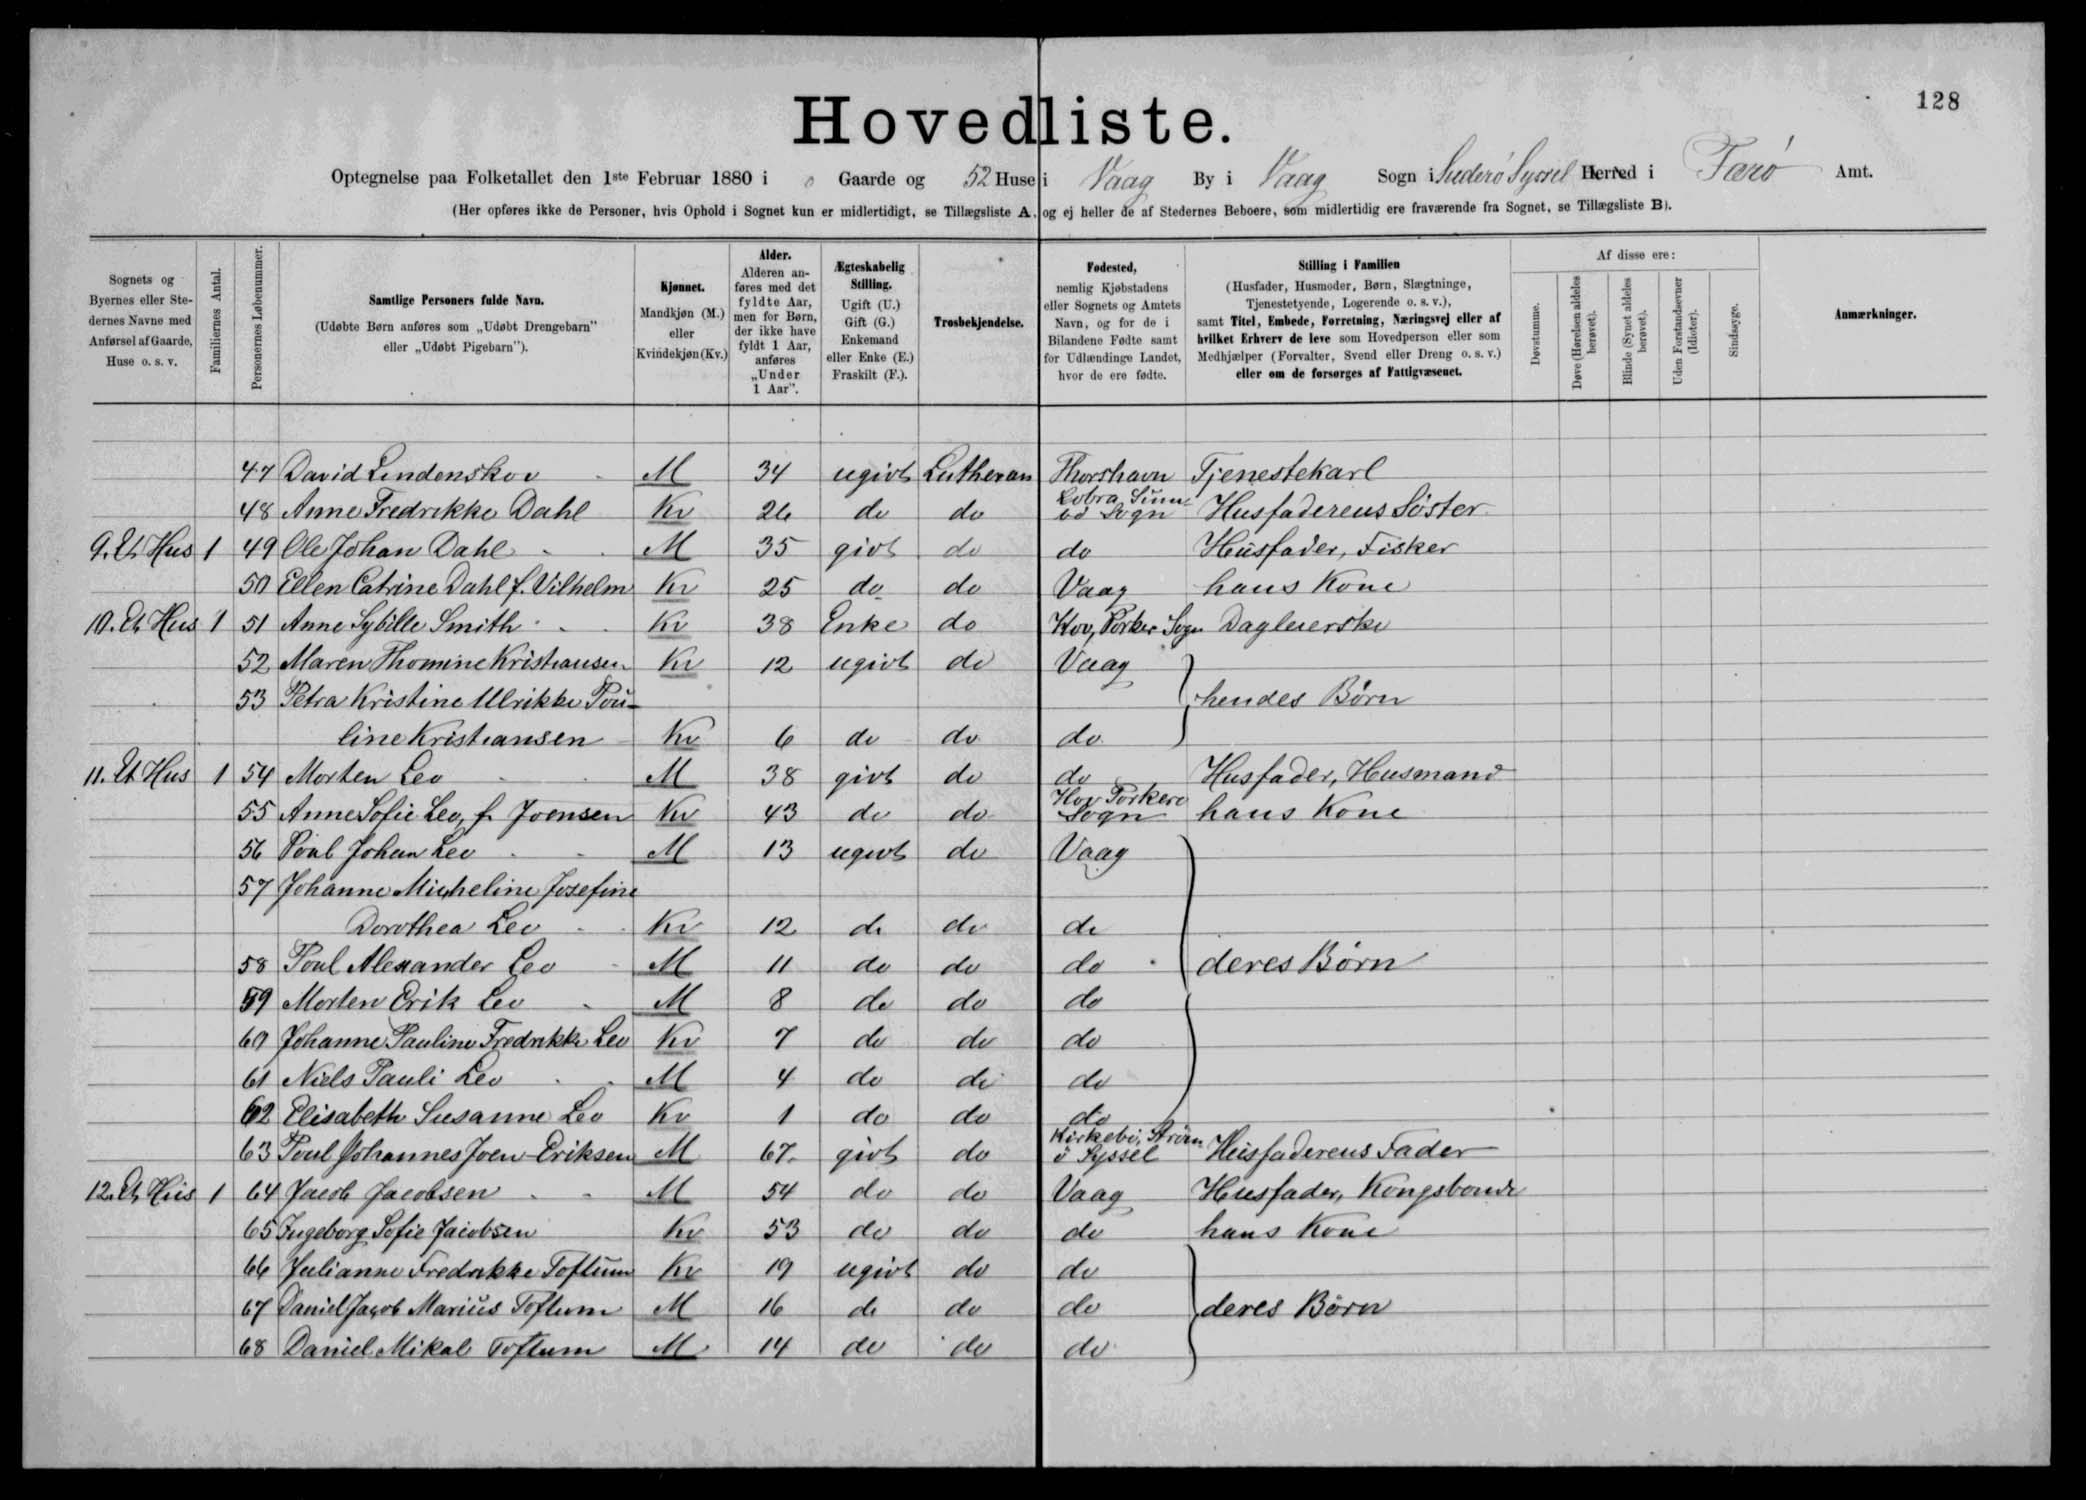 128
Hovedliste.
Optegnelse paa Folketallet den 1ste Februar 1880 i 0 Gaarde og 52 Huse i Vaag By i Vaag Sogn i Suderö Syssel Herred i Færö Amt.
(Her opføres ikke de Personer, hvis Ophold i Sognet kun er midlertidigt, se Tillægsliste A, og ej heller de af Stedernes Beboere, som midlertidig ere fraværende fra Sognet, se Tillægsliste B).
Sognets og
Byernes eller Ste-
dernes Navne med
Anførsel af Gaarde,
Huse o. s. v.
Familiernes Antal.
Personernes Løbenummer.
Samtlige Personers fulde Navn.
(Udøbte Børn anføres som „Udøbt Drengebarn"
eller „Udøbt Pigebarn").
Kjønnet.
Mandkjøn (M.)
eller
Kvindekjøn (Kv.)
Alder.
Alderen an-
føres med det
fyldte Aar,
men for Børn,
der ikke have
fyldt 1 Aar,
anføres
„Under
1 Aar".
Ægteskabelig
Stilling.
Ugift (U.)
Gift (G.)
Enkemand
eller Enke (E.)
Fraskilt (F.).
Trosbekjendelse.
Fødested,
nemlig Kjøbstadens
eller Sognets og Amtets
Navn, og for de i
Bilandene Fødte samt
for Udlændinge Landet,
hvor de ere fødte.
Stilling i Familien
(Husfader, Husmoder, Børn, Slægtninge,
Tjenestetyende, Logerende o. s. v.),
samt Titel, Embede, Forretning, Næringsvej eller af
hvilket Erhverv de leve som Hovedperson eller som
Medhjælper (Forvalter, Svend eller Dreng o. s. v.)
eller om de forsørges af Fattigvæsenet.
Af disse ere:
Døvstumme.
Døve (Hørelsen aldeles
berøvet).
Blinde (Synet aldeles
berøvet).
Uden Forstandsevner
(Idioter).
Sindssyge.
Anmærkninger.
47 David Lindenskov M 34 ugivt Lutheran Thorshavn Tjenestekarl
48 Anne Fredrikke Dahl Kv 26 do do Lobra, Sunn bö Sogn Husfaderens Söster
9. Et Hus 1 49 Ole Johan Dahl M 35 givt do do Husfader, Fisker
50 Ellen Catrine Dahl f. Vilhelm Kv 25 do do Vaag hans Kone
10. Et Hus 1 51 Anne Sybille Smith Kv 38 Enke do Hov, Porker Sogn Dagleierske
52 Maren Thomine Kristiansen Kv 12 ugivt do Vaag
53 Petra Kristine Ulrikke Pou- hendes Börn
line Kristiansen Kv 6 do do do
11. Et Hus 1 54 Morten Leo M 38 givt do do Husfader, Husmand
55 Anne Sofie Leo, f. Joensen Kv 43 do do Hov Porkere Sogn hans Kone
56 Poul Johan Leo M 13 ugivt do Vaag
57 Johanne Micheline Josefine
Dorothea Leo Kv 12 do do do
58 Poul Alexander Leo M 11 do do do deres Börn
59 Morten Erik Leo M 8 do do do
60 Johanne Pauline Fredrikke Leo Kv 7 do do do
61 Niels Pauli Leo M 4 do do do
62 Elisabeth Susanne Leo Kv 1 do do do
63 Poul Johannes Joen-Eriksen M 67 givt do Kirkebö, Ström ö Syssel Husfaderens Fader
12. Et Hus 1 64 Jacob Jacobsen M 54 do do Vaag Husfader, Kongsbonde
65 Ingeborg Sofie Jacobsen Kv 53 do do do hans Kone
66 Julianne Fredrikke Toftum Kv 19 ugivt do do
67 Daniel Jacob Marius Toftum M 16 do do do deres Börn
68 Daniel Mikal Toftum M 14 do do do